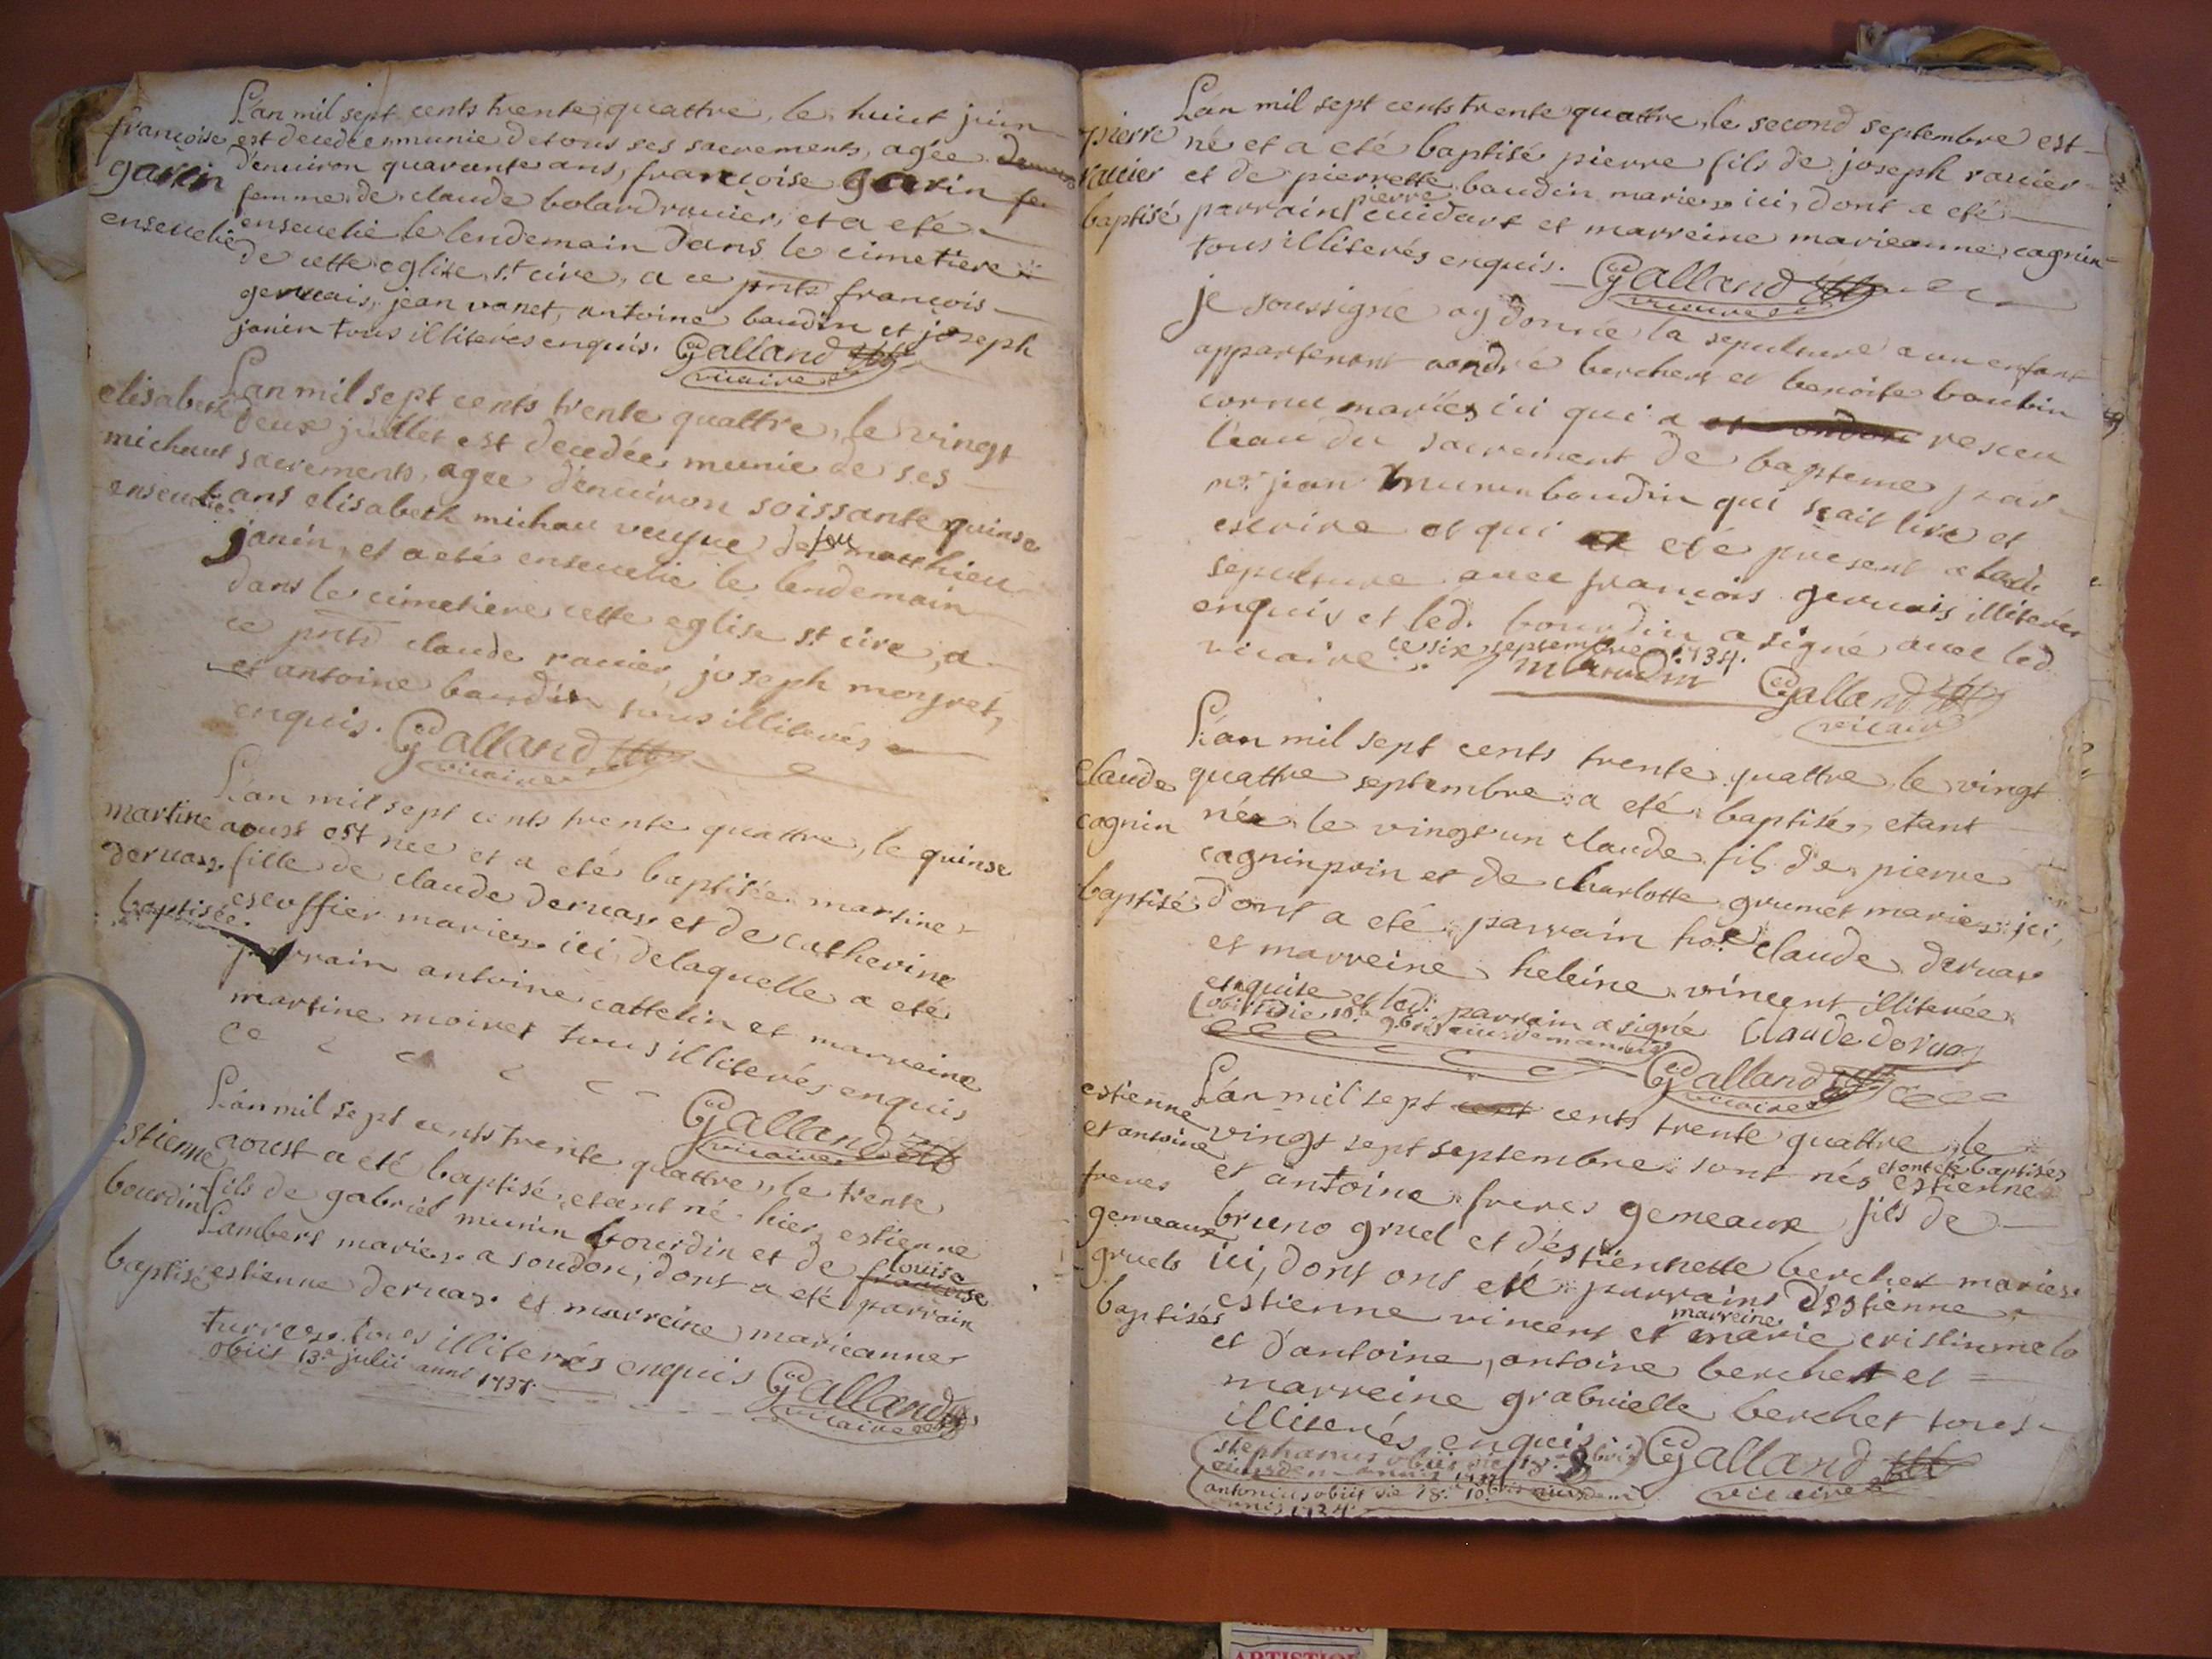 L'an mil sept cents trente quattre, le huict juin
françoise est decedée munie de tous ses sacrements, agée
garin d'enuiron quarante ans, françoise garin
femme de claude bolard rauier, et a eté
enseuelie enseuelie le lendemain dans le cimetiere
de cette eglise st cire, a ce pnts françois
geruais, jean vanet, antoine baudin et joseph
janin tous illiterés enquis. Galland
vicaire
L'an mil sept cents trente quattre, le vingt
elisabeth deux juillet est decedée munie de ses
michaut sacrements, agee d'enuiron soissante quinse
enseuelie ans elisabeth michau veufue de feu matthieu
janin, et a eté enseuelie le lendemain
dans le cimetiere cette eglise st cire, a
ce pnts claude rauier, joseph moyret,
et antoine baudin tous illiterés
enquis. Galland
vicaire
L'an mil sept cents trente quattre, le quinse
martine aoust est née et a eté baptisée martine
deruas fille de claude deruas et de catherine
baptisée escoffier maries ici, de laquelle a eté
parrain antoine cattelin et marreine
martine moiret tous illiterés enquis
Galland
vicaire
L'an mil sept cents trente quattre, le trente
estienne aoust a eté baptisé, etant né hier, estienne
bourdin fils de gabriel munin bourdin et de louise
Lambert maries a soudon, dont a eté parrain
baptisé estienne deruas et marreine marieanne
turres tous illiterés enquis Galland
obiit 13a julii anni 1737. vicaire
L'an mil sept cents trente quattre, le second septembre est
pierre né et a eté baptisé pierre fils de joseph rauier
rauier et de pierrette baudin maries ici, dont a eté
baptisé parrain pierre cuidart et marreine marieanne cagnin
tous illiterés enquis. Galland
vicaire
je soussigné ay donné la sepulture a un enfant
appartenant a andré berchet et benoite baubin
cornu mariés ici qui a resceu
l'eau du sacrement de bapteme par
mr jean munin boudin qui sçait lire et
escrire et qui a eté present a lad.
sepulture auec françois geruais illiterés
enquis et led. bourdin a signé auec led.
vicaire. ce six septembre 1734.
Galland
vicaire
L'an mil sept cents trente quattre, le vingt
claude quattre septembre a eté baptisé, etant
cagnin né le vingt un claude fils de pierre
cagnin poin et de charlotte grumet maries ici,
baptisé dont a eté parrain hote claude deruas
et marreine heleine vincent illiterée
enquise et led: parrain a signé Claude Deruas
obiit die 10a
Galland
vicaire
L'an mil sept cents trente quattre, le
estienne vingt sept septembre sont nés et ont eté baptisés estienne
et antoine et antoine freres gemeaux fils de
freres bruno gruel et d'estiennette berchet maries
gemeaux ici, dont ont eté parrains d'estienne
gruels estienne vincent et marreine marie
baptisés et d'antoine, antoine berchet et
marreine grabrielle berchet tous
illiterés enquis. Galland
vicaire
stephanus obiit die 18a
antonius obiit die 18a 10bris
1734